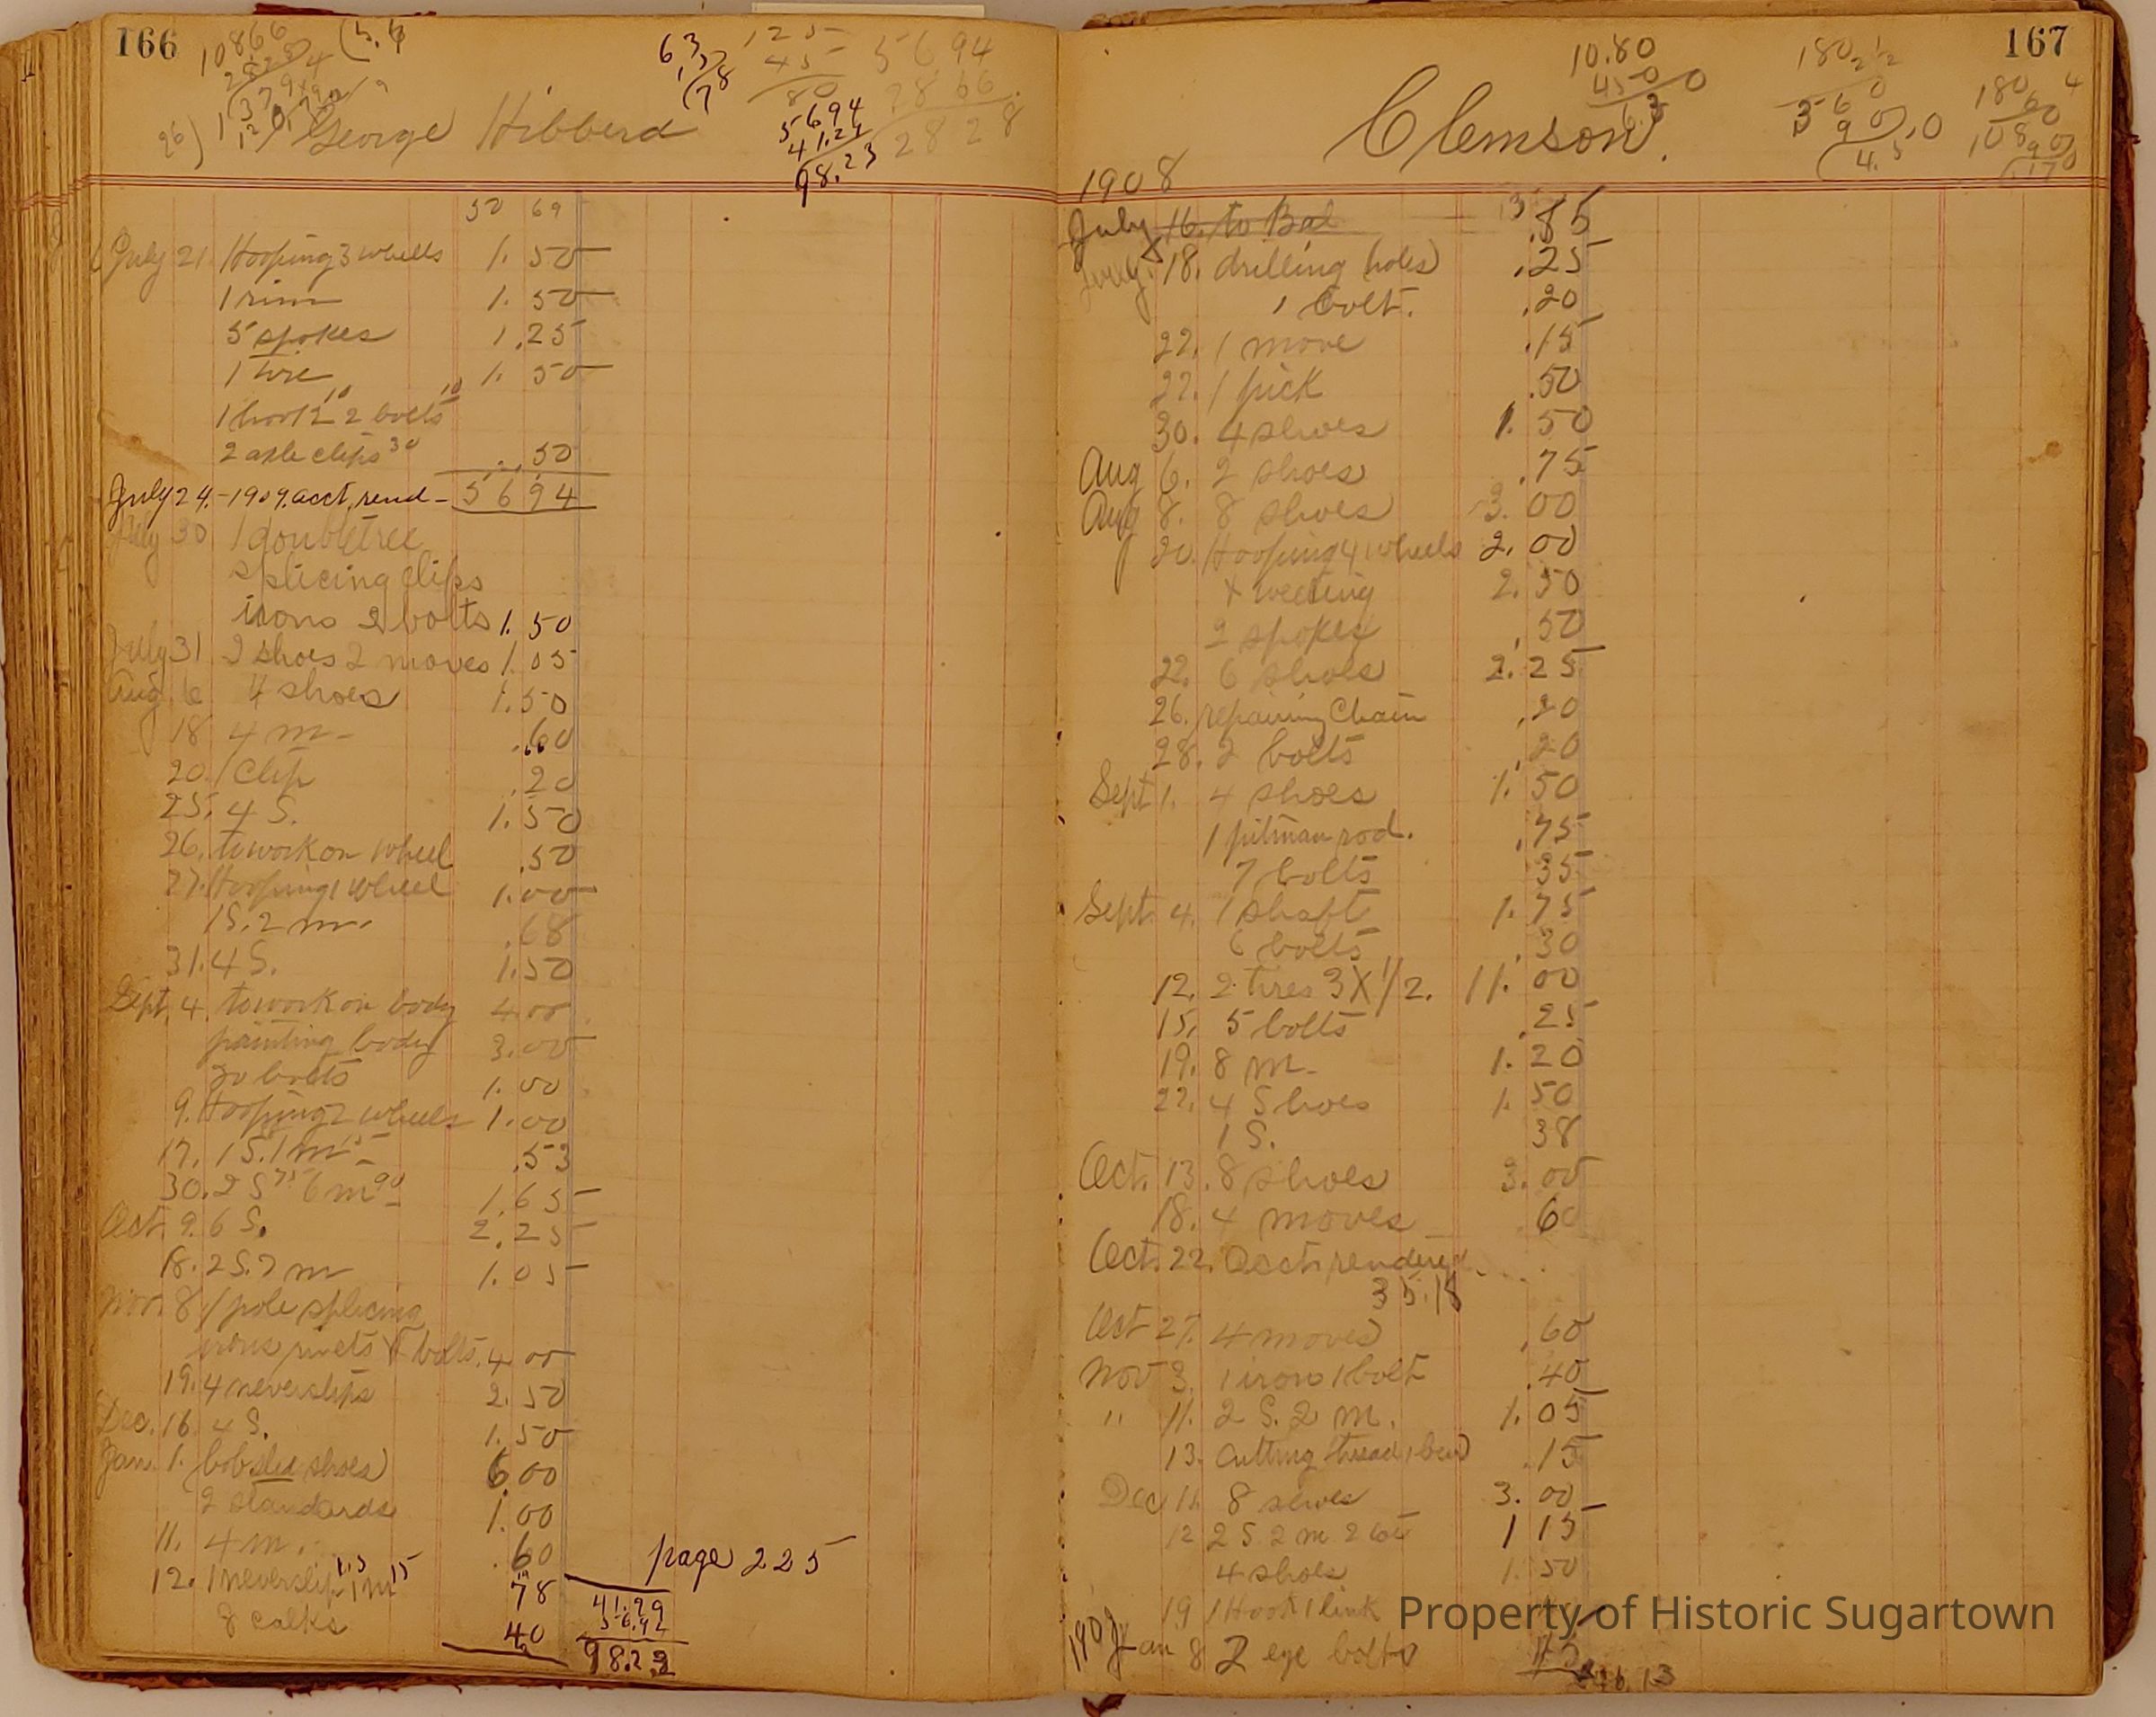 166
George Hibberd
50 69
July 21 Hooping 3 wheels 1.50
1 rim 1.50
5 spokes 1.25
1 tire 1.50
1 hook 10 2 bolts 10
2 axle clips 30 .50
July 24.-1909. acct, rend- 56 94
July 30 1 doubletree
splicing clips
irons 2 bolts 1.50
July 31 2 shoes 2 moves 1.05
Aug. 6 4 shoes 1.50
18 4 m- .60
20 1 Clip .20
25. 4 S. 1.50
26. to work on wheel .50
27. Hooping 1 wheel 1.00
1 S. 2 m. .68
31. 4 S. 1.50
Sept. 4. to work on body 4 00
painting body 3.00
20 bolts 1.00
9. Hooping 2 wheels 1.00
17. 1 S. 1 m 15 .53
30. 2 S 75 6 m 90 1.65
Oct. 9. 6 S. 2.25
18. 2 S. 2 m 1.05
Nov. 8 1 pole splicing
irons rivets & bolts. 4 00
19. 4 neverslips 2.50
Dec. 16. 4 S. 1.50
Jan. 1. bobsled shoes 6.00
2 standards 1.00
11. 4 m. .60
12. 1 neverslip 1 m 15 78
8 calks 40
page 225
41.29
56.94
98.23
63
125
45
80
5694
41.29
98.23
5694
2866
2828
167
10.80
450
Clemson.
1908
July 16. to Bal .85
July 18. drilling holes .25
1 bolt. .20
22. 1 move .15
22. 1 pick .50
30. 4 shoes 1.50
Aug 6. 2 shoes .75
Aug 8. 8 shoes 3.00
20. Hooping 4 wheels 2.00
2.50
2 spokes .50
22. 6 shoes 2.25
26. repairing Chain .20
28. 2 bolts .20
Sept 1. 4 shoes 1.50
1 pitman rod. .75
7 bolts 35
Sept. 4. 1 shaft 1.75
6 bolts .30
12. 2 tires 3 X 1/2. 11.00
15. 5 bolts .25
19. 8 m- 1.20
22. 4 Shoes 1.50
1 S. 38
Oct. 13. 8 shoes 3.00
18. 4 moves 60
Oct. 22. Acct. rendered
35.18
Oct 27. 4 moves .60
Nov 3. 1 iron 1 bolt .40
" 11. 2 S. 2 m. 1.05
13. Cutting thread 1 .15
Dec 11. 8 shoes 3.00
12 2 S. 2 m 2 1 15
4 shoes 1.50
19 1 Hook 1 link
1909 Jan 8 2 eye bolts
Property of Historic Sugartown